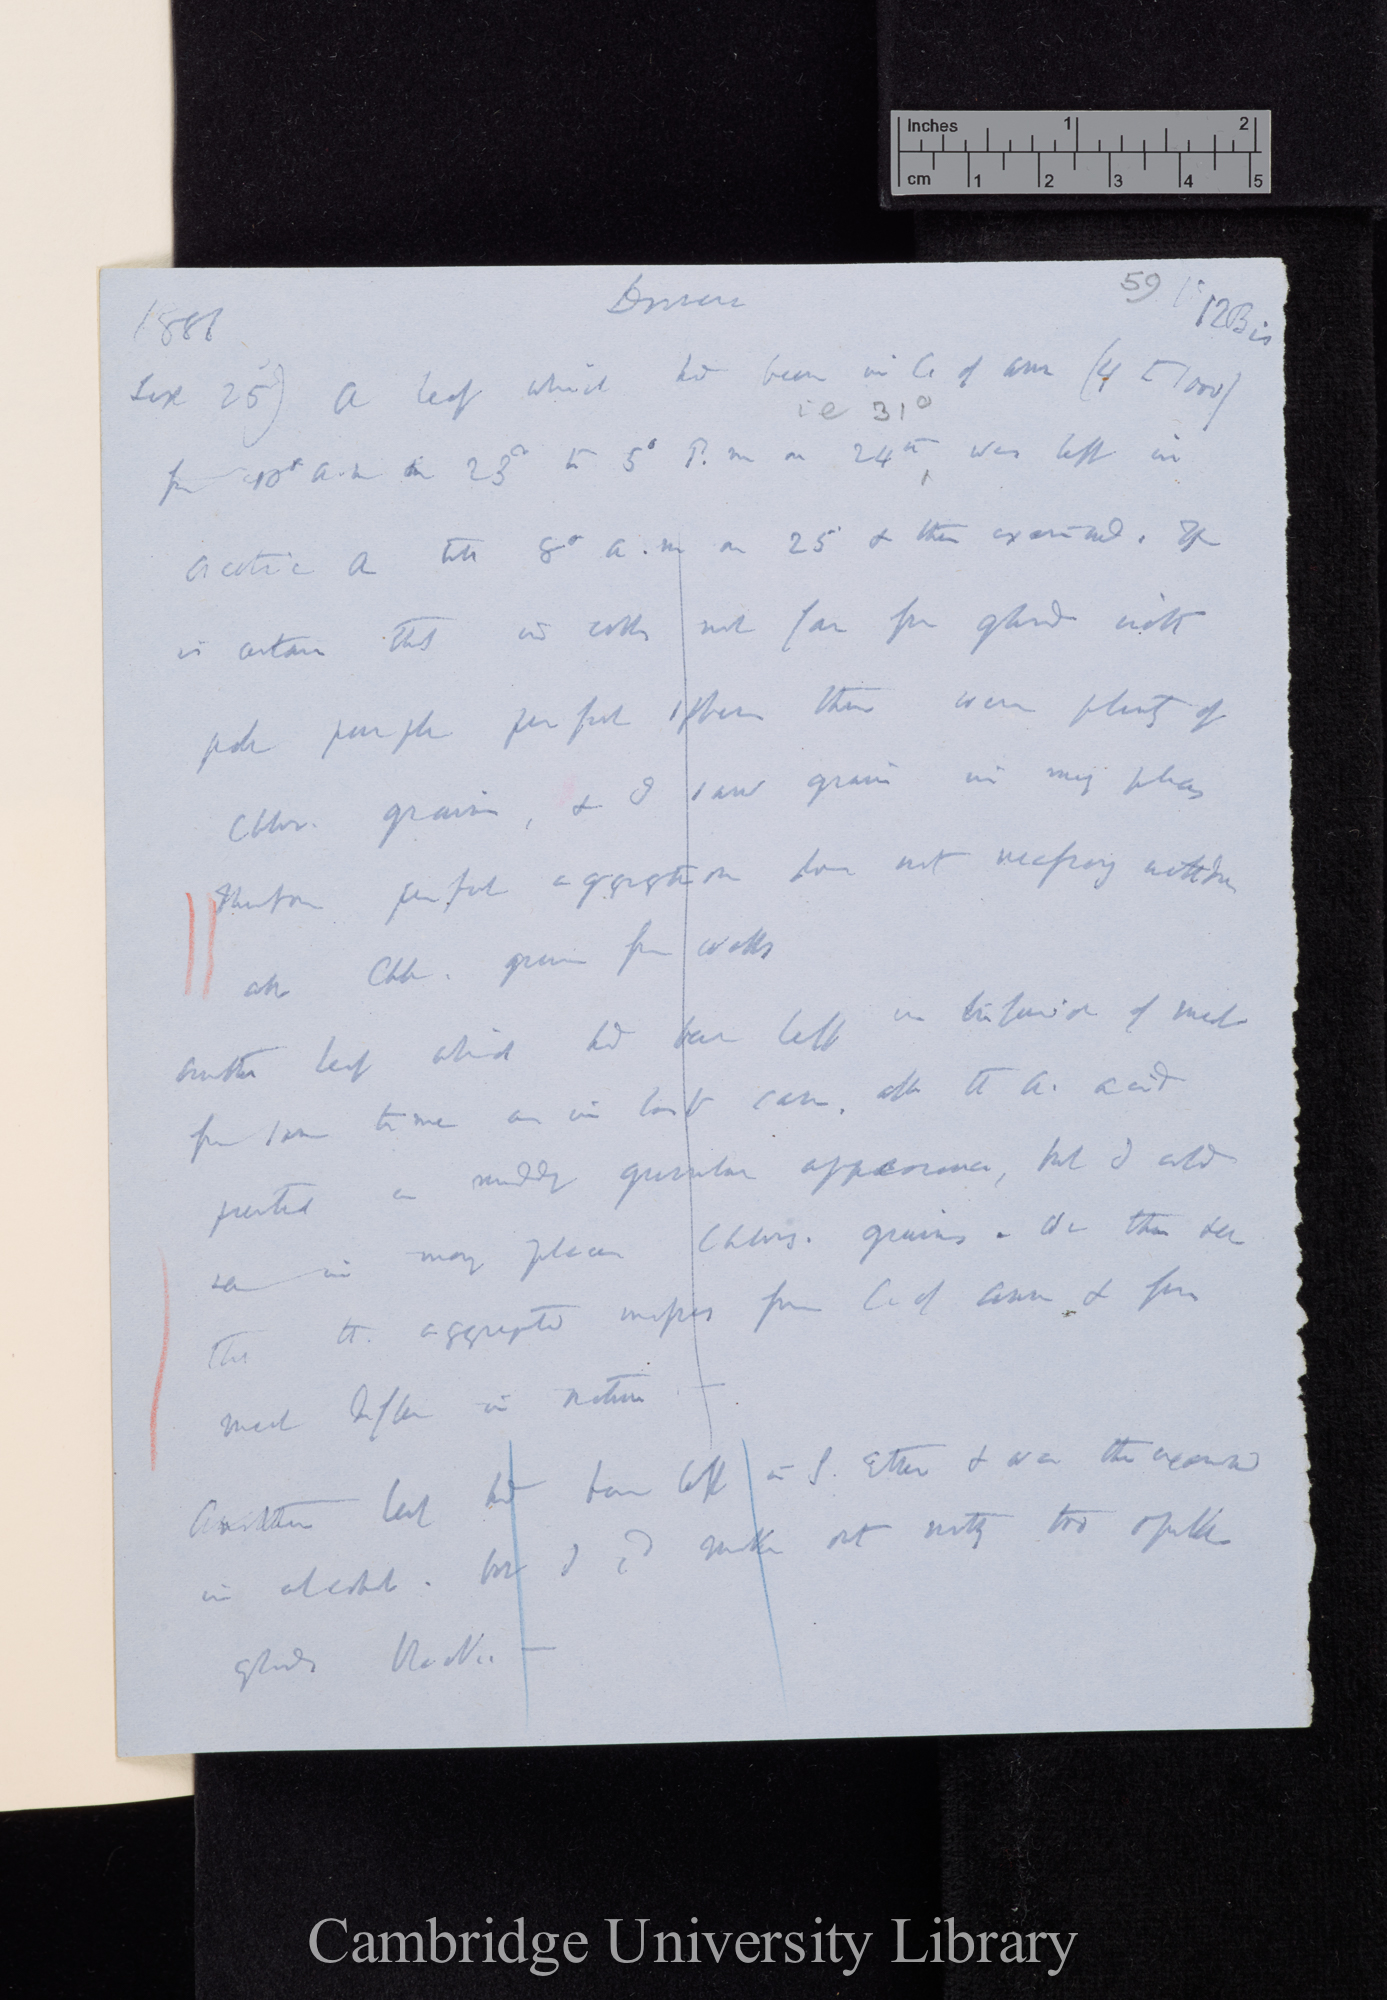 Inches 1 2
cm 1 2 3 4 5
59
1881 Drosera 12 Bis
25) A leaf which had been in C. of Amm (4 to 1000)
ie 31°
a.m on 23d to 5° P.m on 24th, was left in
acetic a till 8° a.m on 25 & then examined. It
is certain that in cells not far from glands with
pale purple perfect spheres there were plenty of
Chlor. grains, & I saw grains in many places
Therefore perfect aggregation does not necessarily withdraw
all Chlor. grains from walls
Another leaf which had been left in infusion of meat
for same time as in last case, after the A. acid
presented a muddy granular appearance, but I could
see in many places Chlor. grains. We thus see
that the aggregated masses from C. of Amm & from
meat differ in nature —
Another leaf had been left in S. Ether & was then examined
in alcohol. but I could make out nothing too opake
glands blackened —
Cambridge University Library